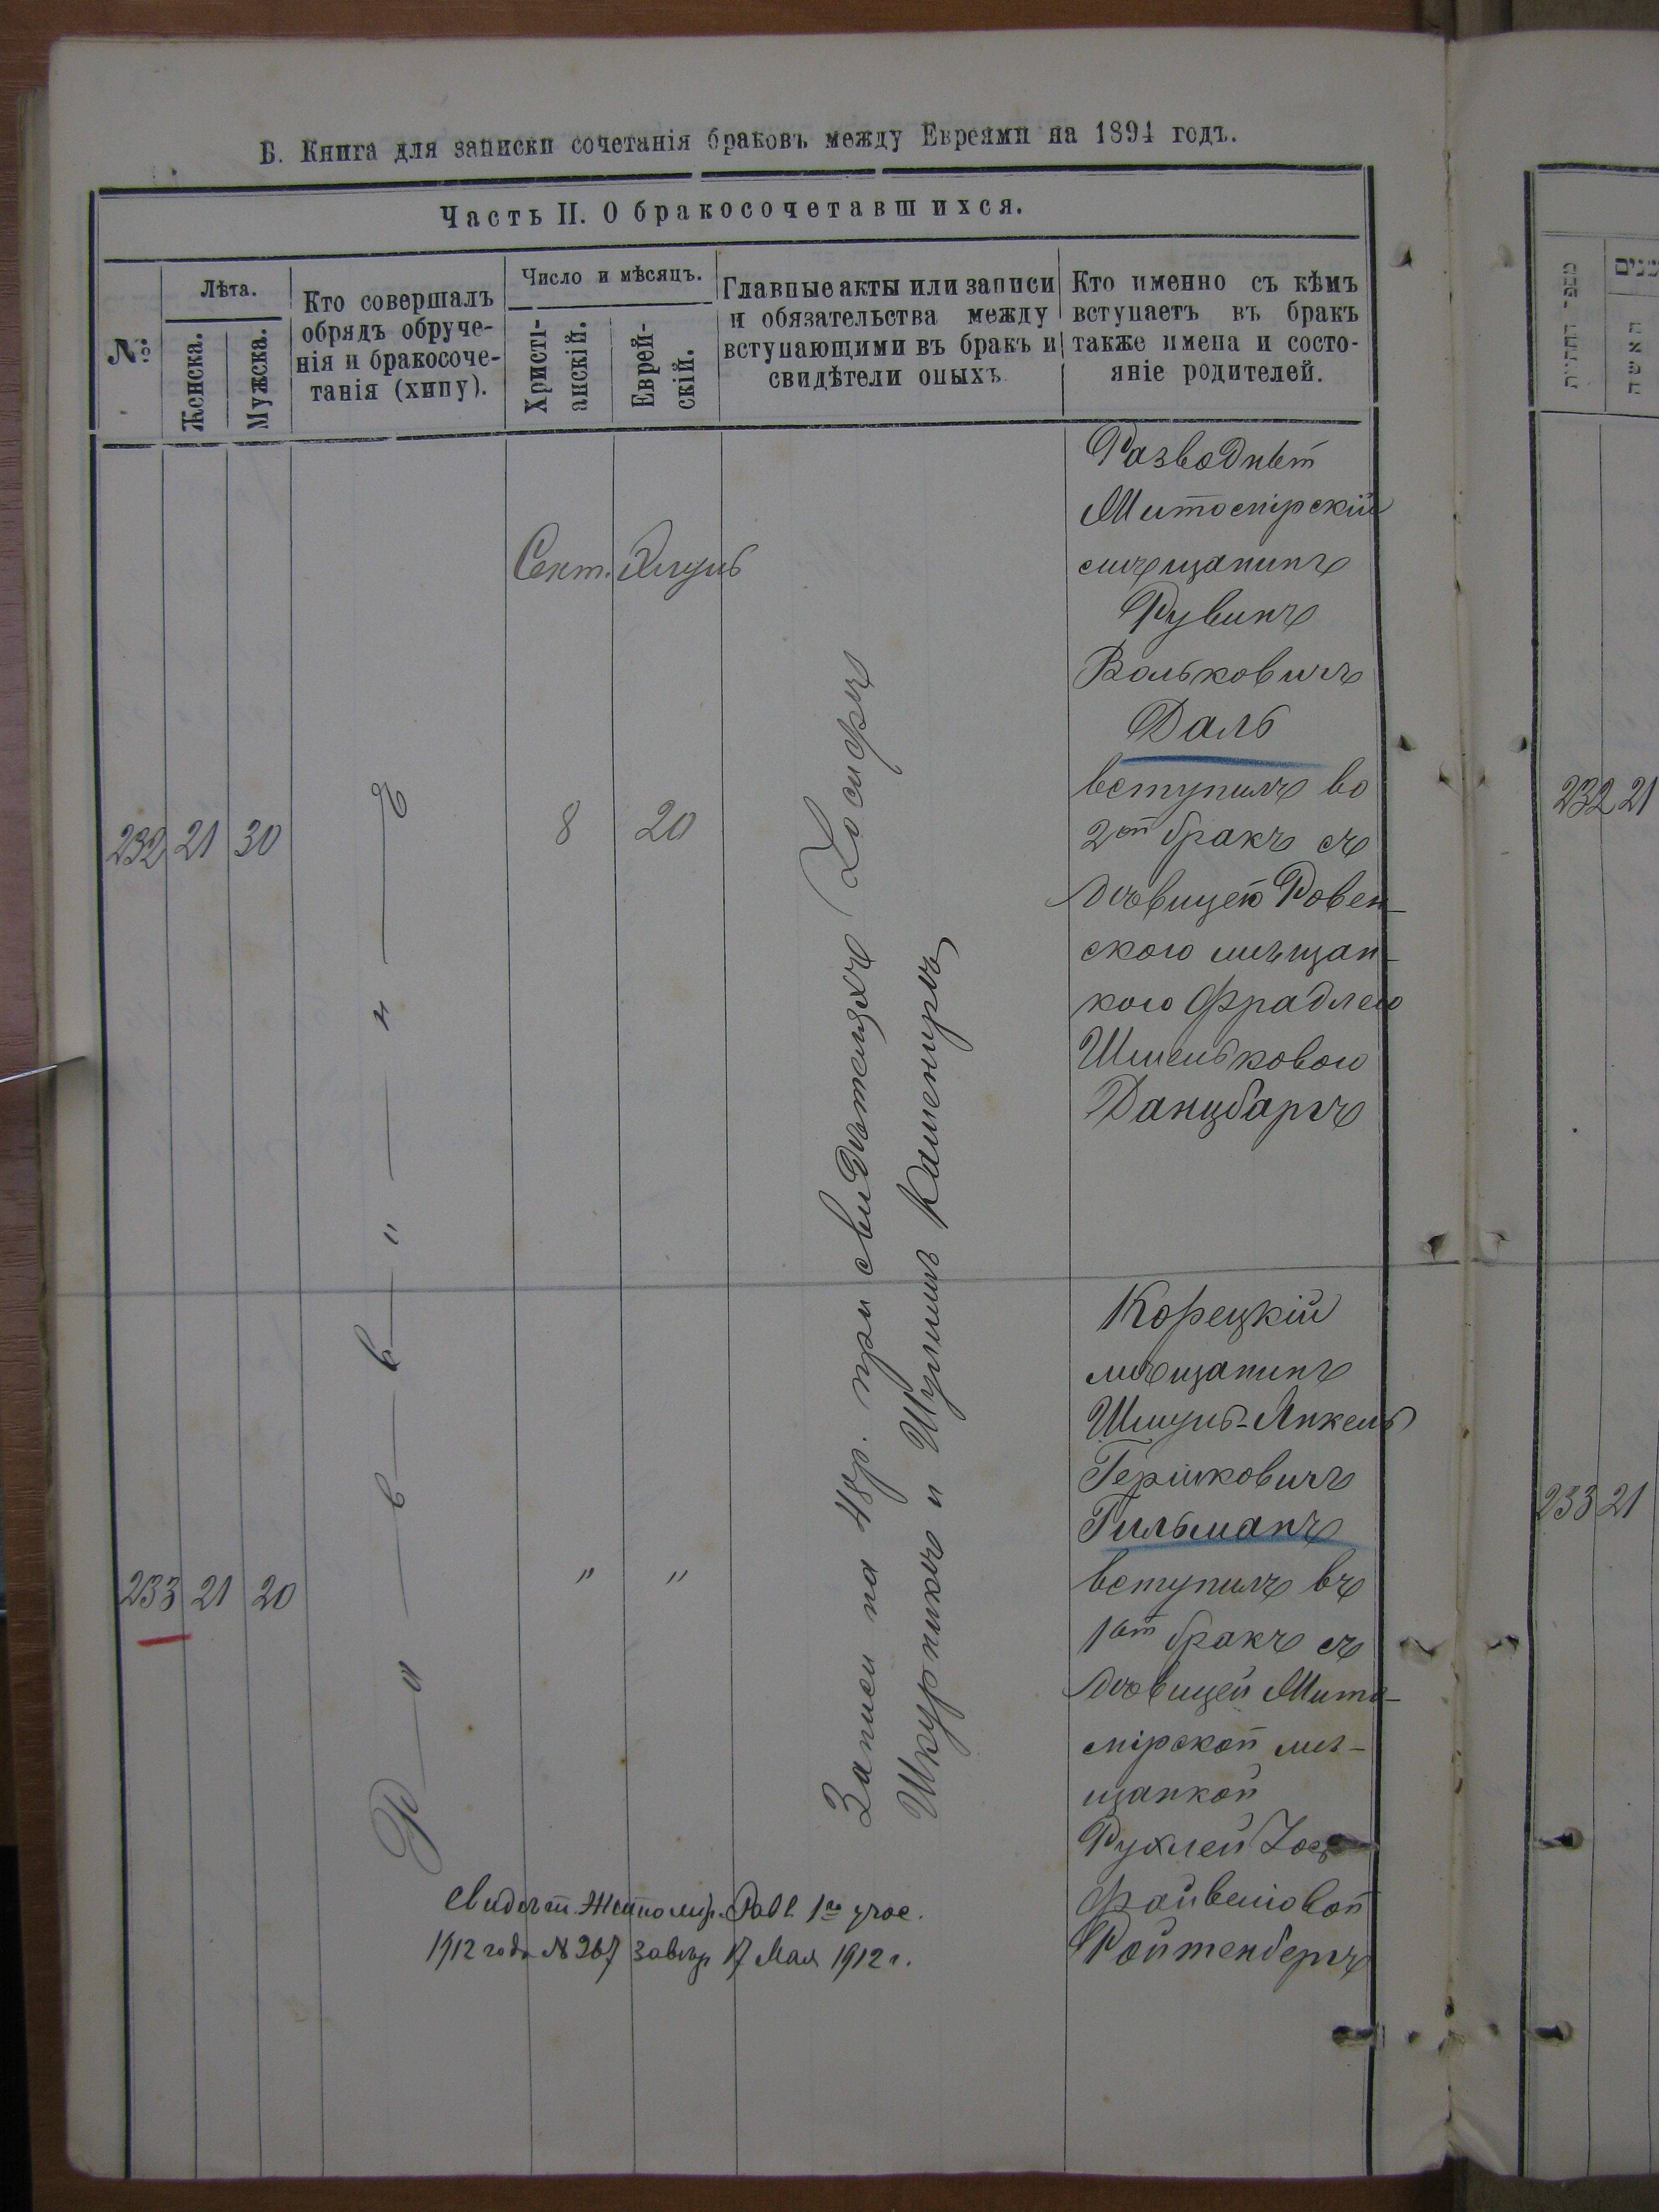 Б. Книга для записки сочетанія браковъ между Евреями на 1894 годъ.
Часть II. О бракосочетавшихся.
№
Лѣта.
Женска.
Мужска.
Кто совершалъ
обрядъ обруче-
нія и бракосоче-
танія (хипу).
Число и мѣсяцъ.
Христі-
анскій.
Еврей-
скій.
Главные акты или записи
и обязательства между
вступающими въ бракъ и
свидѣтели оныхъ
Кто именно съ кѣмъ
вступаетъ въ бракъ
также имена и состо-
яніе родителей.
Сент. Элулъ
232 21 30
8 20
Разводный
Житомірскій
мѣщанинъ
Рувинъ
Вольковичъ
Даль
вступилъ во
2ой бракъ съ
дѣвицею Ровен-
скою мѣщан-
кою Фрадлею
Шмульковою
Данцбаргъ
Р а в в и н ъ
Записи на 48 р. при свидѣтеляхъ Хосифъ
Шкурникъ и Шулимъ Камениръ
233 21 20
" "
Корецкій
мѣщанинъ
Шмуль-Янкель
Гершковичъ
Гильманъ
вступилъ въ
1ой бракъ съ
дѣвицей Жито-
мірской мѣ-
щанкой
Рухлей Іос
Файвишовой
Ройтенбергъ
Свидѣт. Житомир. Равв. 1го учас.
1912 года № 267 завѣр 17 Мая 1912 г.
232 21
233 21
מספר החתנות
שנים
האשה